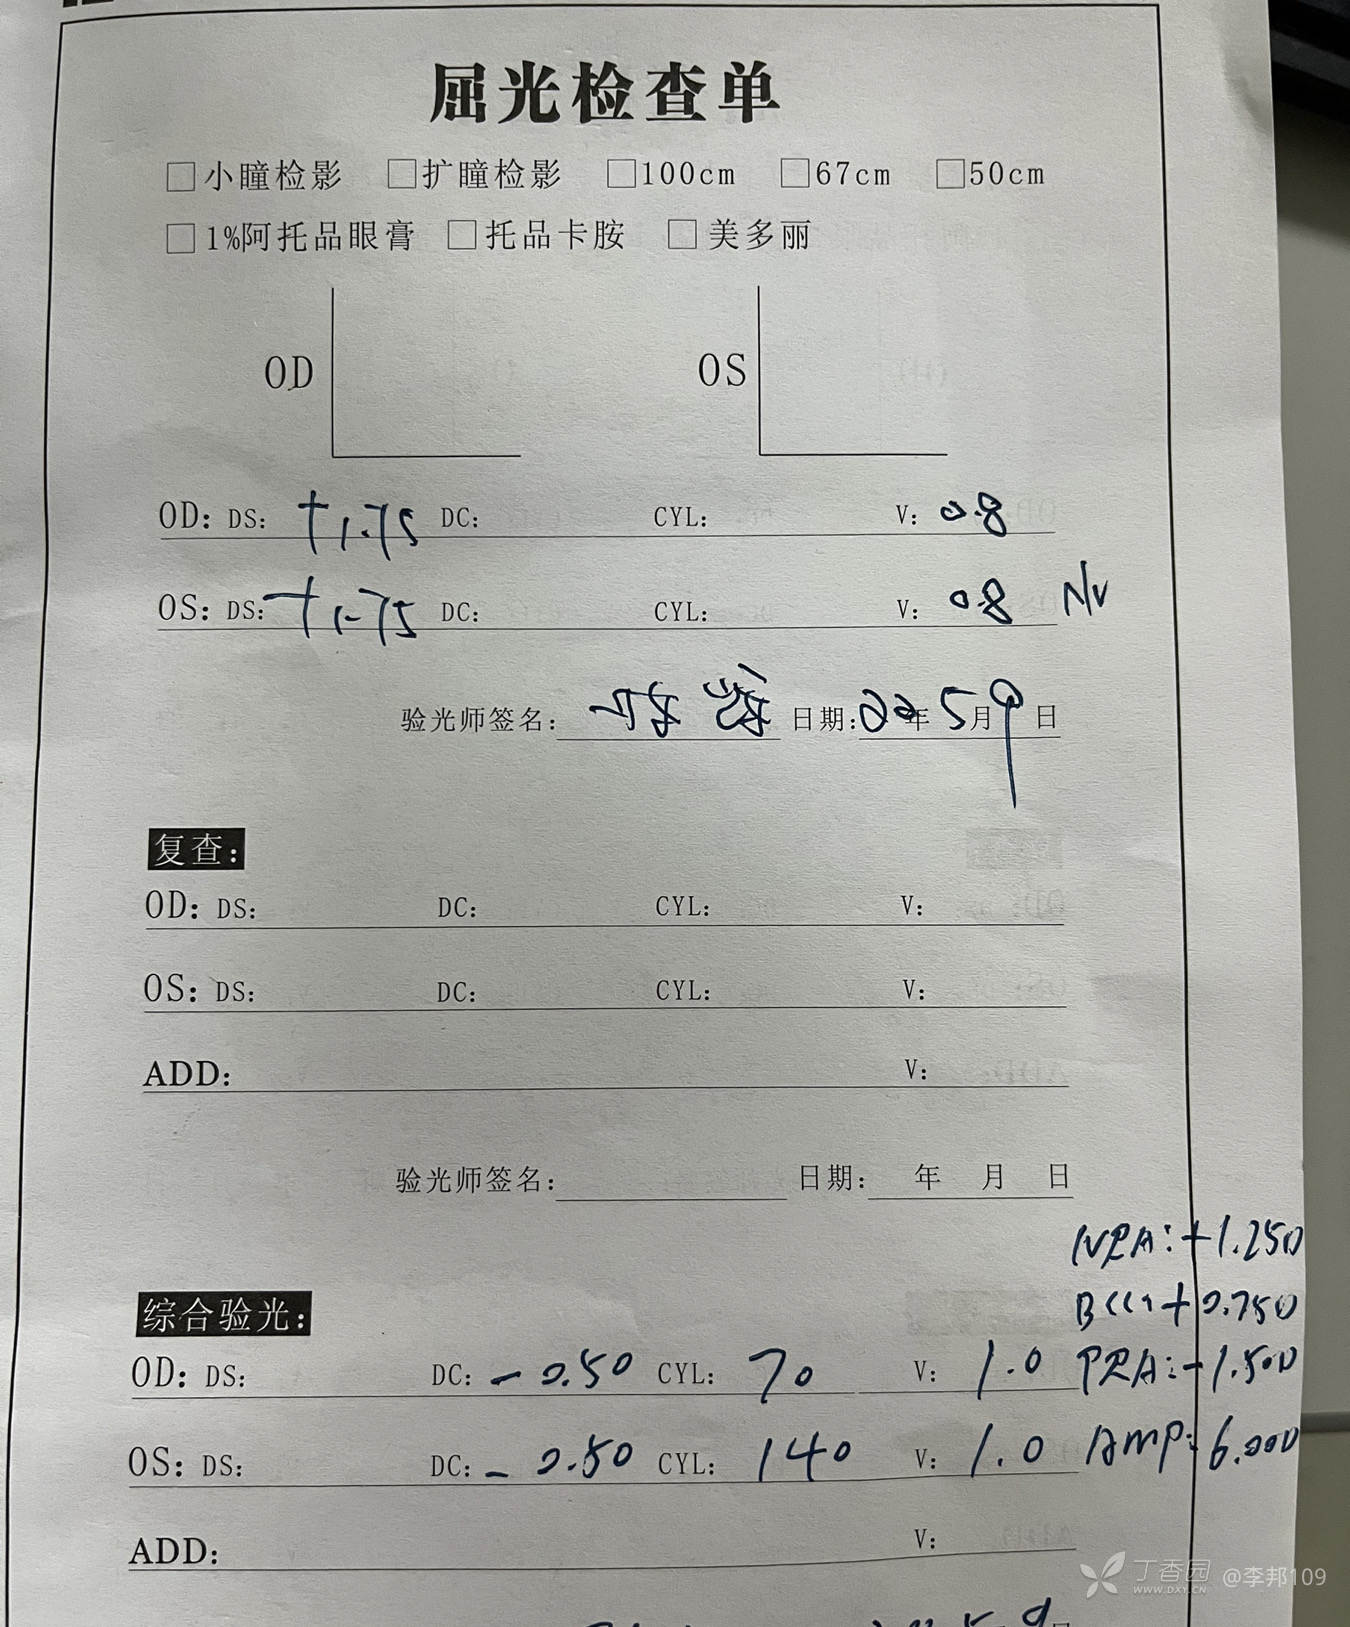 屈光检查单
□小瞳检影 □扩瞳检影 □100cm □67cm □50cm
□1%阿托品眼膏 □托品卡胺 □美多丽
OD OS
OD: DS: +1.75 DC: CYL: V: 0.8
OS: DS: +1.75 DC: CYL: V: 0.8
验光师签名: 日期: 年5月9日
复查:
OD: DS: DC: CYL: V:
OS: DS: DC: CYL: V:
ADD: V:
验光师签名: 日期: 年 月 日
NRA:+1.25D
综合验光: BCC:+0.75D
OD: DS: DC: -0.50 CYL: 70 V: 1.0 PRA:-1.50D
OS: DS: DC: -0.50 CYL: 140 V: 1.0 AMP: 6.00D
ADD: V:
丁香园 @李邦109
WWW.DXY.CN